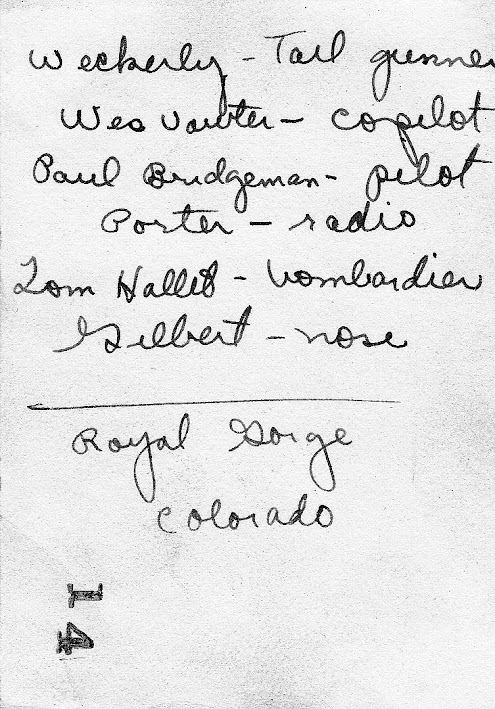 Weckerly - Tail gunner
Wes Vawter - copilot
Paul Bridgeman - pilot
Porter - radio
Tom Hallet - bombardier
Gilbert - nose
Royal Gorge
Colorado
14